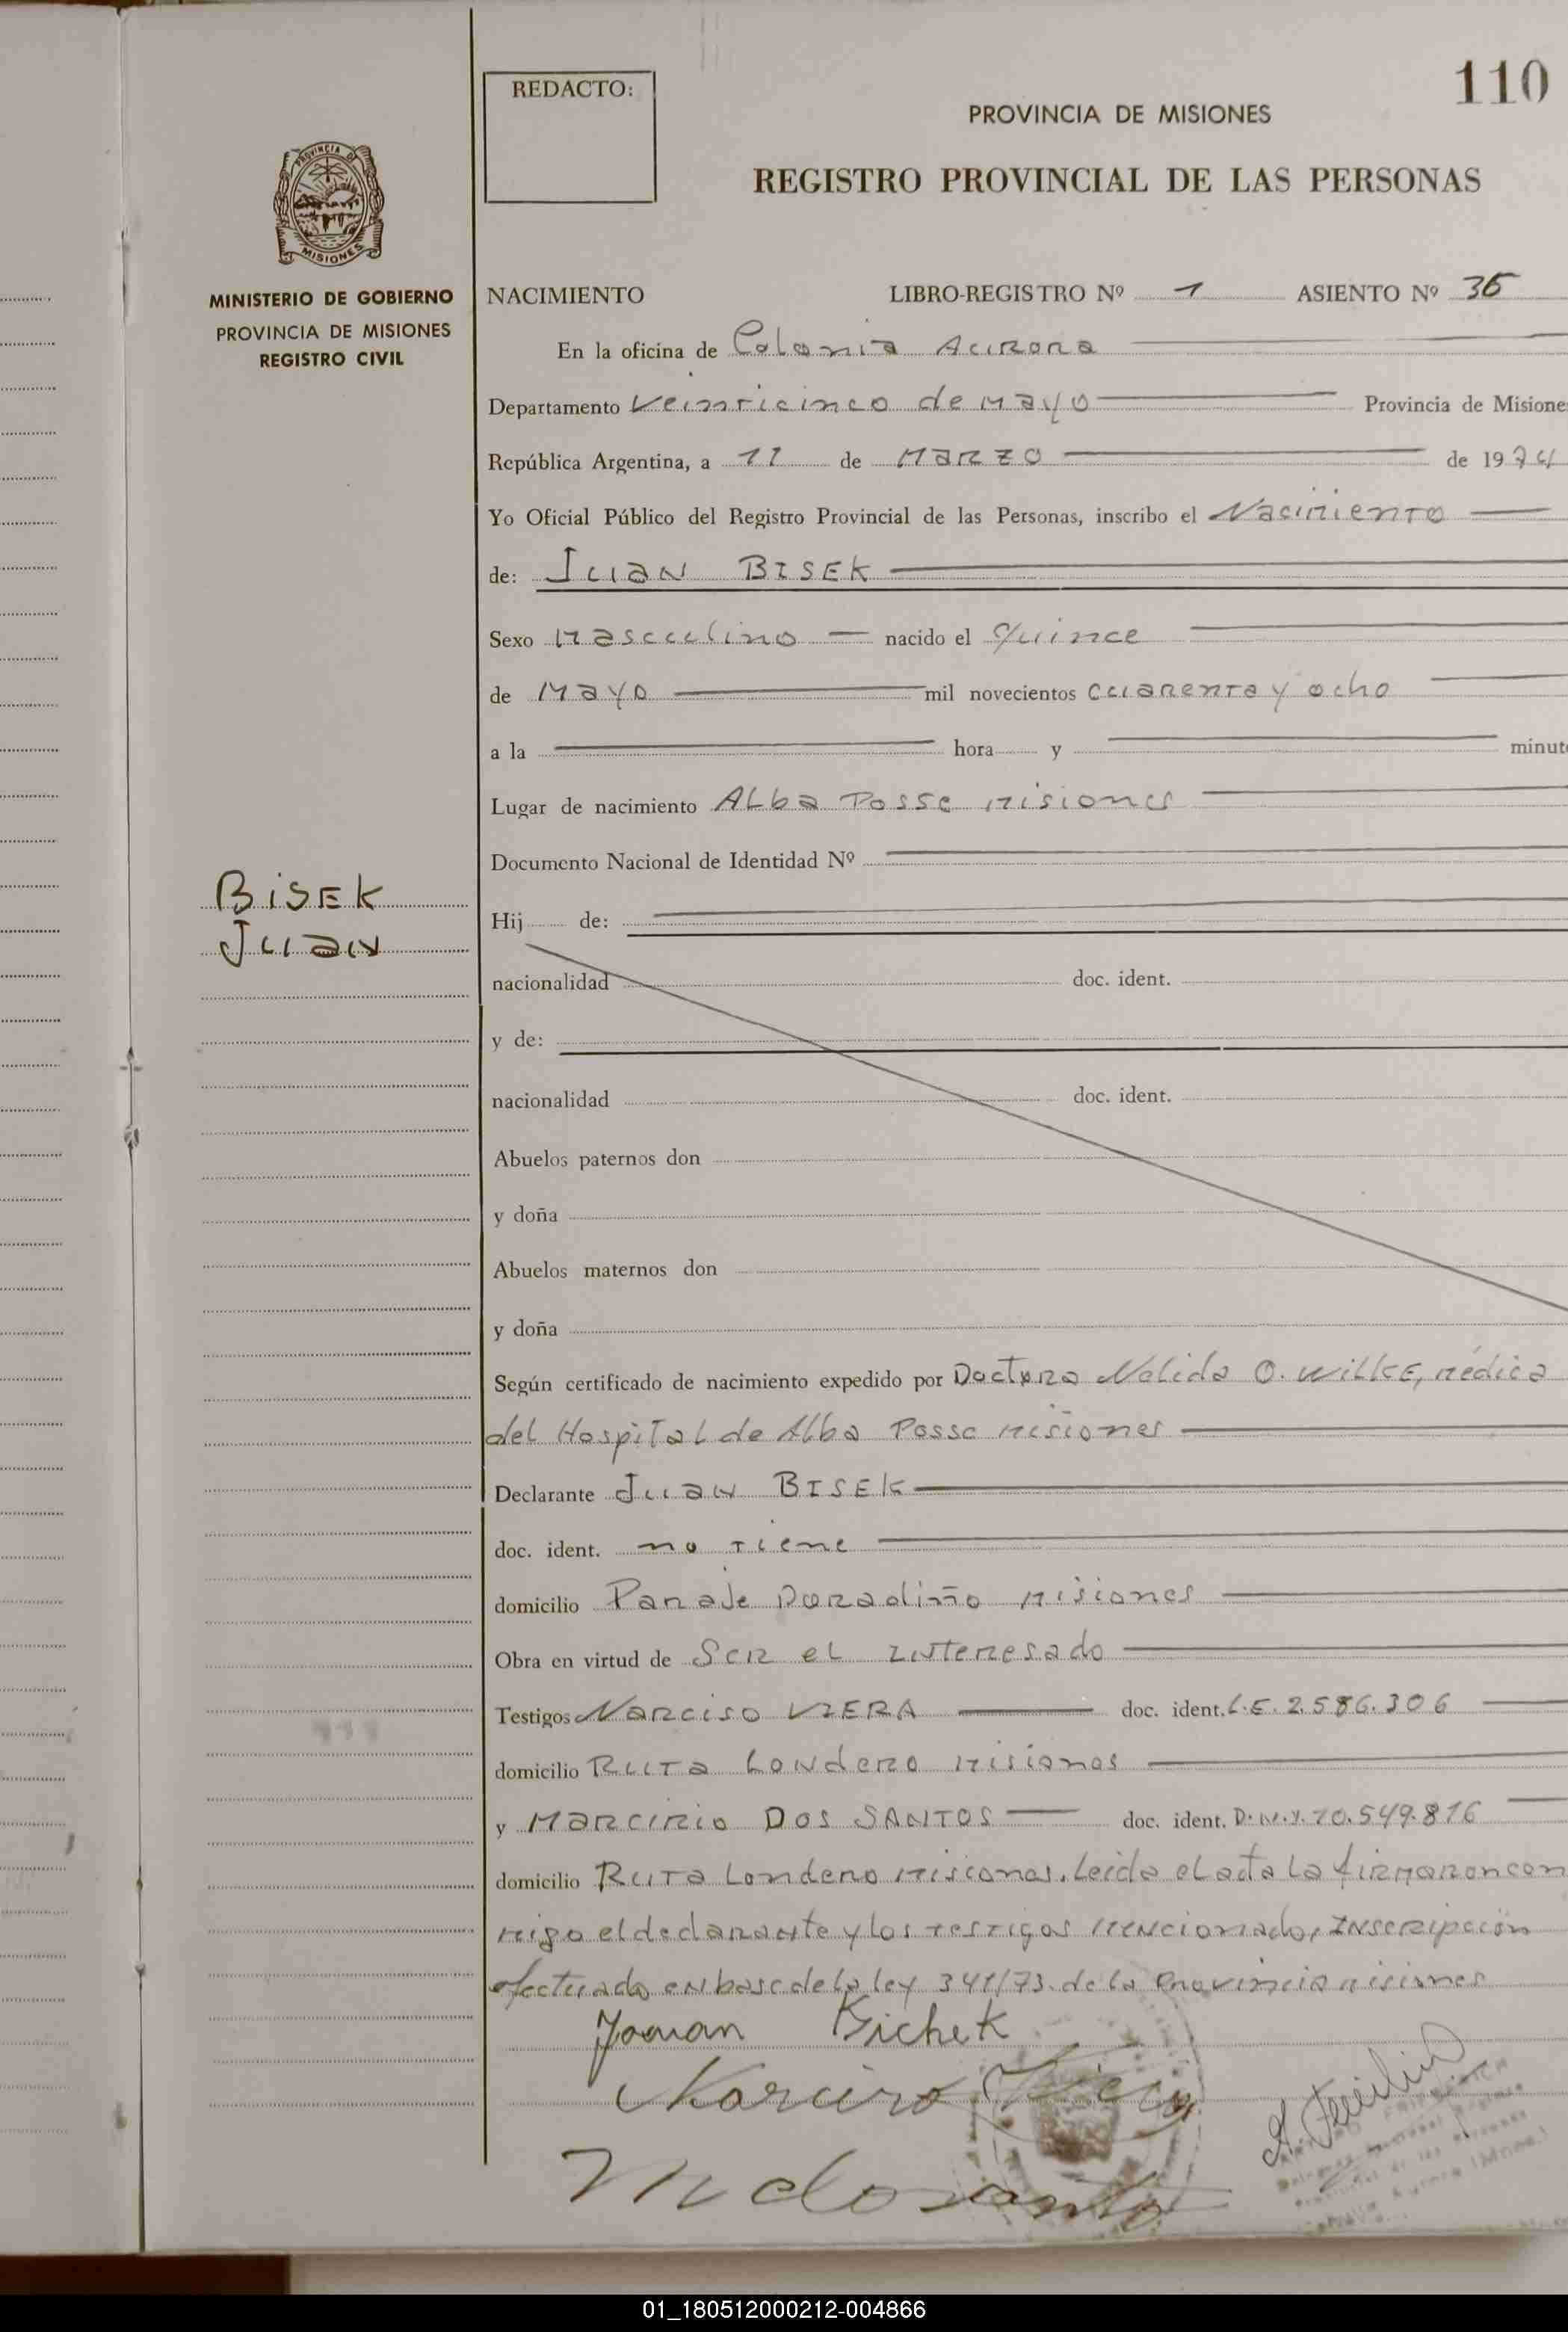 110
REDACTO:
PROVINCIA DE MISIONES
REGISTRO PROVINCIAL DE LAS PERSONAS
PROVINCIA DE
MISIONES
MINISTERIO DE GOBIERNO
PROVINCIA DE MISIONES
REGISTRO CIVIL
BISEK
Juan
NACIMIENTO LIBRO-REGISTRO Nº 1 ASIENTO Nº 36
En la oficina de Colonia Aurora
Departamento Veinticinco de Mayo Provincia de Misione
República Argentina, a 11 de Marzo de 1974
Yo Oficial Público del Registro Provincial de las Personas, inscribo el Nacimiento
de: Juan BISEK
Sexo Masculino nacido el Quince
de Mayo mil novecientos cuarenta y ocho
a la hora y minut
Lugar de nacimiento Alba Posse Misiones
Documento Nacional de Identidad Nº
Hij de:
nacionalidad doc. ident.
y de:
nacionalidad doc. ident.
Abuelos paternos don
y doña
Abuelos maternos don
y doña
Según certificado de nacimiento expedido por Doctora Nelida O. Wilke, Médica
del Hospital de Alba Posse Misiones
Declarante Juan BISEK
doc. ident. no tiene
domicilio Paraje Misiones
Obra en virtud de Ser el interesado
Testigos Narciso VIERA doc. ident. L.E. 2.586.306
domicilio Ruta Londero Misiones
y Marcirio DOS SANTOS doc. ident. D.N.I. 10.549.816
domicilio Ruta Londero Misiones. Leida el acta la firmaron con
migo el declarante y los testigos mencionado, Inscripción
efectuada en base de la ley 341/73. de la Provincia Misiones
Jouan Bichek
Narciso Viera
M dos santos
01_180512000212-004866